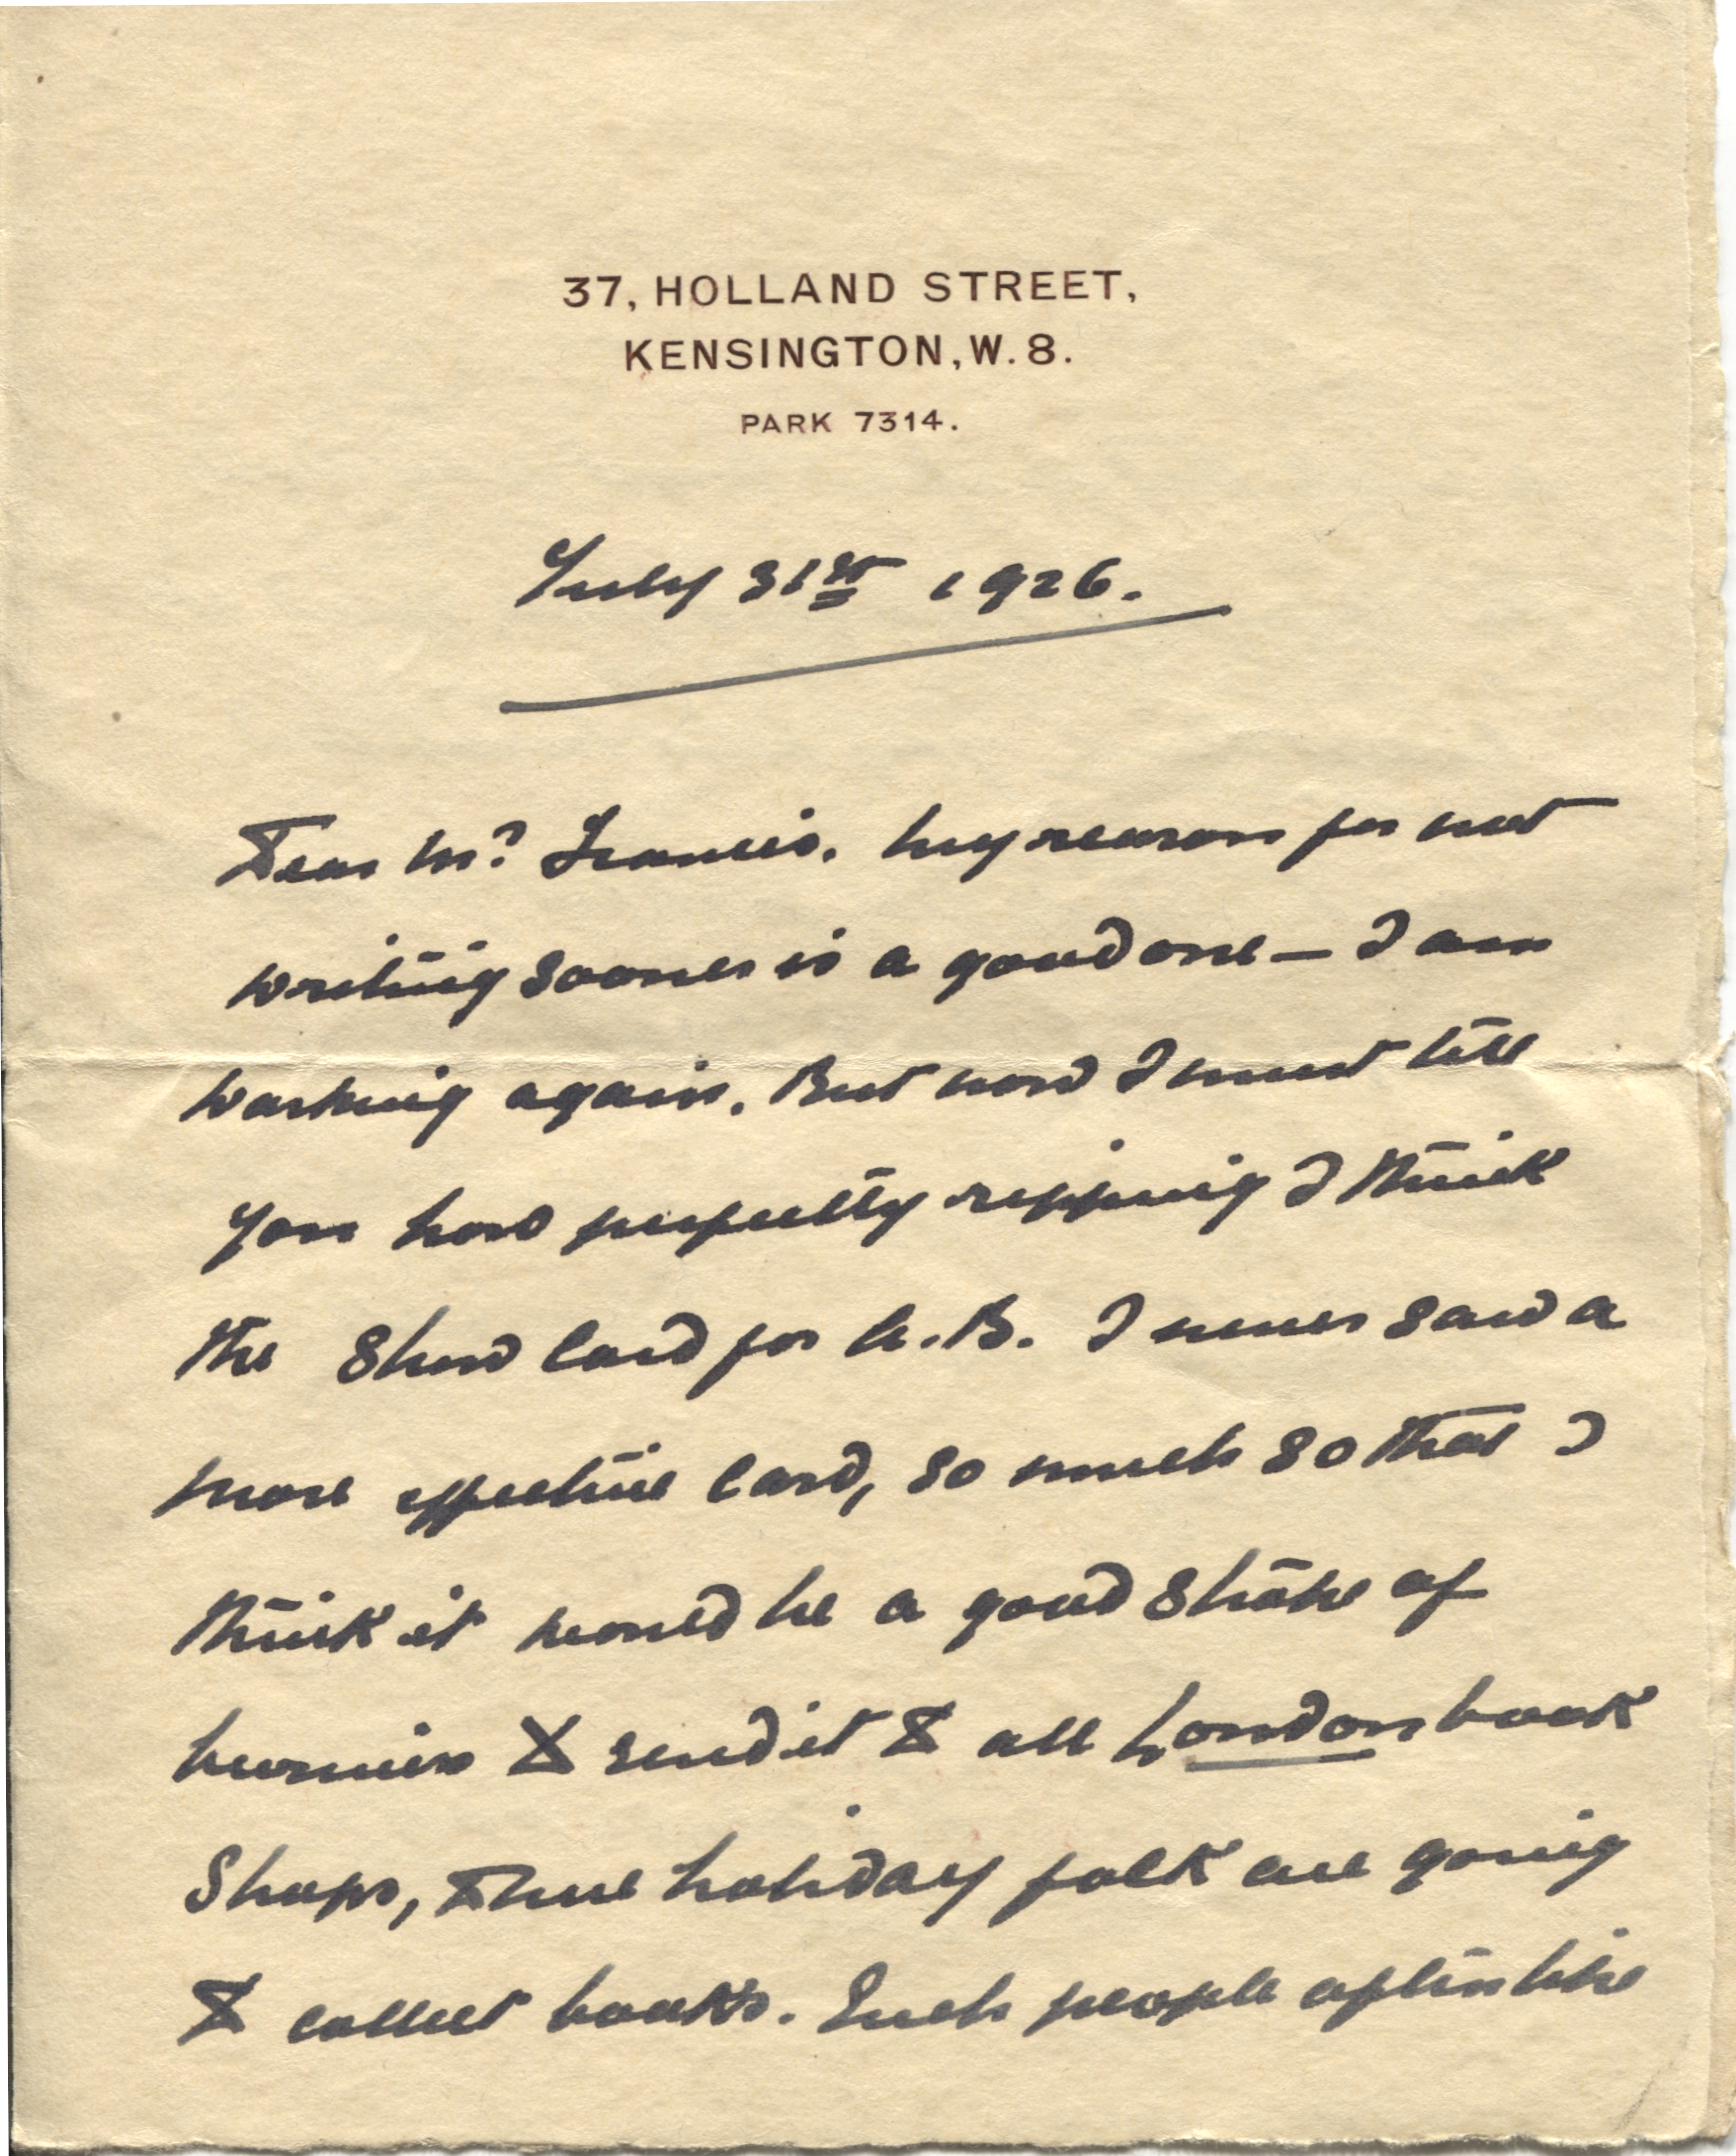 37, HOLLAND STREET,
KENSINGTON, W. 8.
PARK 7314.
July 31st 1926.
Dear Mr Francis. My reason for not
writing sooner is a good one — I am
working again. But now I must tell
you how perfectly ripping I think
the Show Card for A.B. I never saw a
more effective Card, so much so that I
think it would be a good stroke of
business to send it to all London book
Shops, holiday folk are going
to collect books. Such people often like